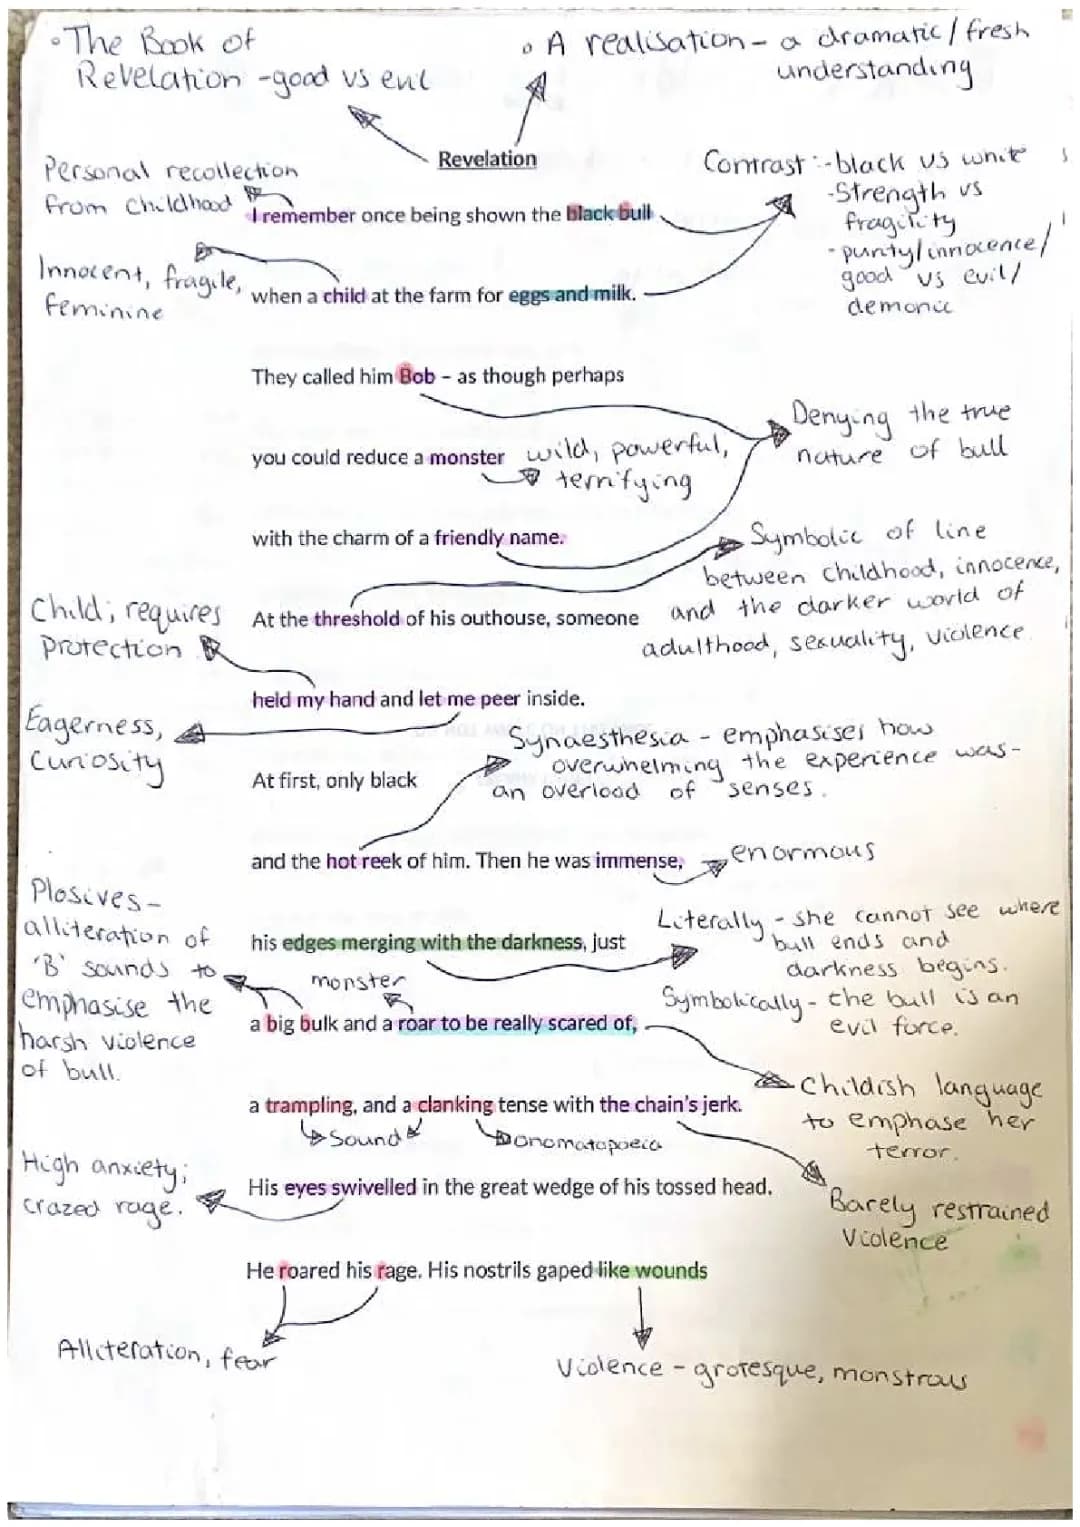 •The Book of
Revelation -good vs evil
• A realisation - a dramatic/fresh
understanding
Revelation
Personal recollection
from childhood
Contrast:-black vs white
-Strength vs
fragility
-purity/innocence/
good vs evil/
demonic
I remember once being shown the black bull
Innocent, fragile,
feminine
when a child at the farm for eggs and milk.
They called him Bob – as though perhaps
Denying the true
nature of bull
you could reduce a monster
wild, powerful,
terrifying
with the charm of a friendly name.
Symbolic of line
between childhood, innocence,
and the darker world of
adulthood, sexuality, violence.
Child; requires
protection
At the threshold of his outhouse, someone
held my hand and let me peer inside.
Eagerness,
Curiosity
Synaesthesia - emphasises how
overwhelming the experience was-
an overload of senses.
At first, only black
and the hot reek of him. Then he was immense,
enormous
Plosives-
alliteration of
'B' sounds to
emphasise the
harsh violence
of bull.
his edges merging with the darkness, just
Literally - she cannot see where
bull ends and
darkness begins.
Symbolically - the bull is an
evil force.
monster
a big bulk and a roar to be really scared of,
Childish language
to emphase her
terror.
a trampling, and a clanking tense with the chain's jerk.
Sound
Onomatopoeia
High anxiety;
crazed rage.
His eyes swivelled in the great wedge of his tossed head.
Barely restrained
Violence
He roared his rage. His nostrils gaped like wounds
Alliteration, fear
Violence - grotesque, monstrous